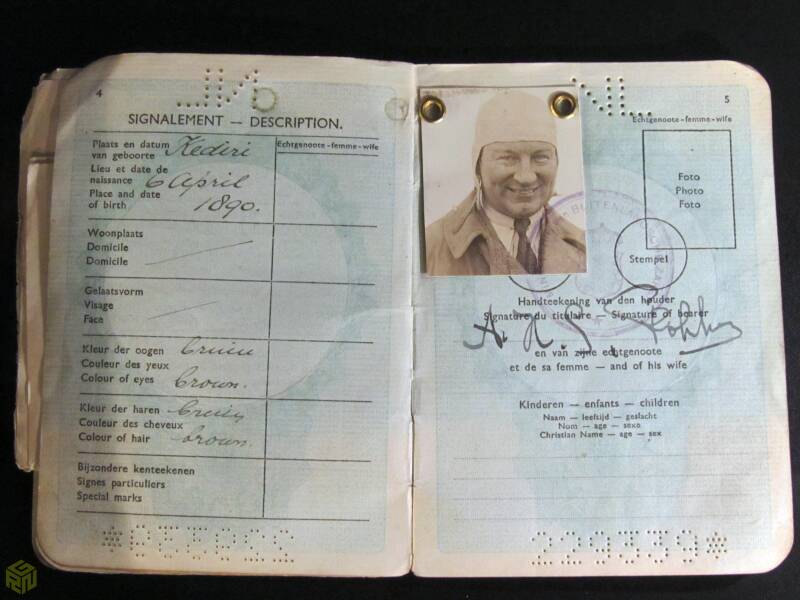 4
SIGNALEMENT — DESCRIPTION.
Plaats en datum
van geboorte
Lieu et date de
naissance
Place and date
of birth
Kediri
6 April
1890.
Echtgenoote-femme-wife
Woonplaats
Domicile
Domicile
Gelaatsvorm
Visage
Face
Kleur der oogen
Couleur des yeux
Colour of eyes
bruin
brown.
Kleur der haren
Couleur des cheveux
Colour of hair
bruin
brown.
Bijzondere kenteekenen
Signes particuliers
Special marks
NL
5
Echtgenoote-femme-wife
Foto
Photo
Foto
Stempel
Handteekening van den houder
Signature du titulaire — Signature of bearer
A. H. G.
en van zijne echtgenoote
et de sa femme — and of his wife
Kinderen — enfants — children
Naam — leeftijd — geslacht
Nom — age — sexe
Christian Name — age — sex
229339*